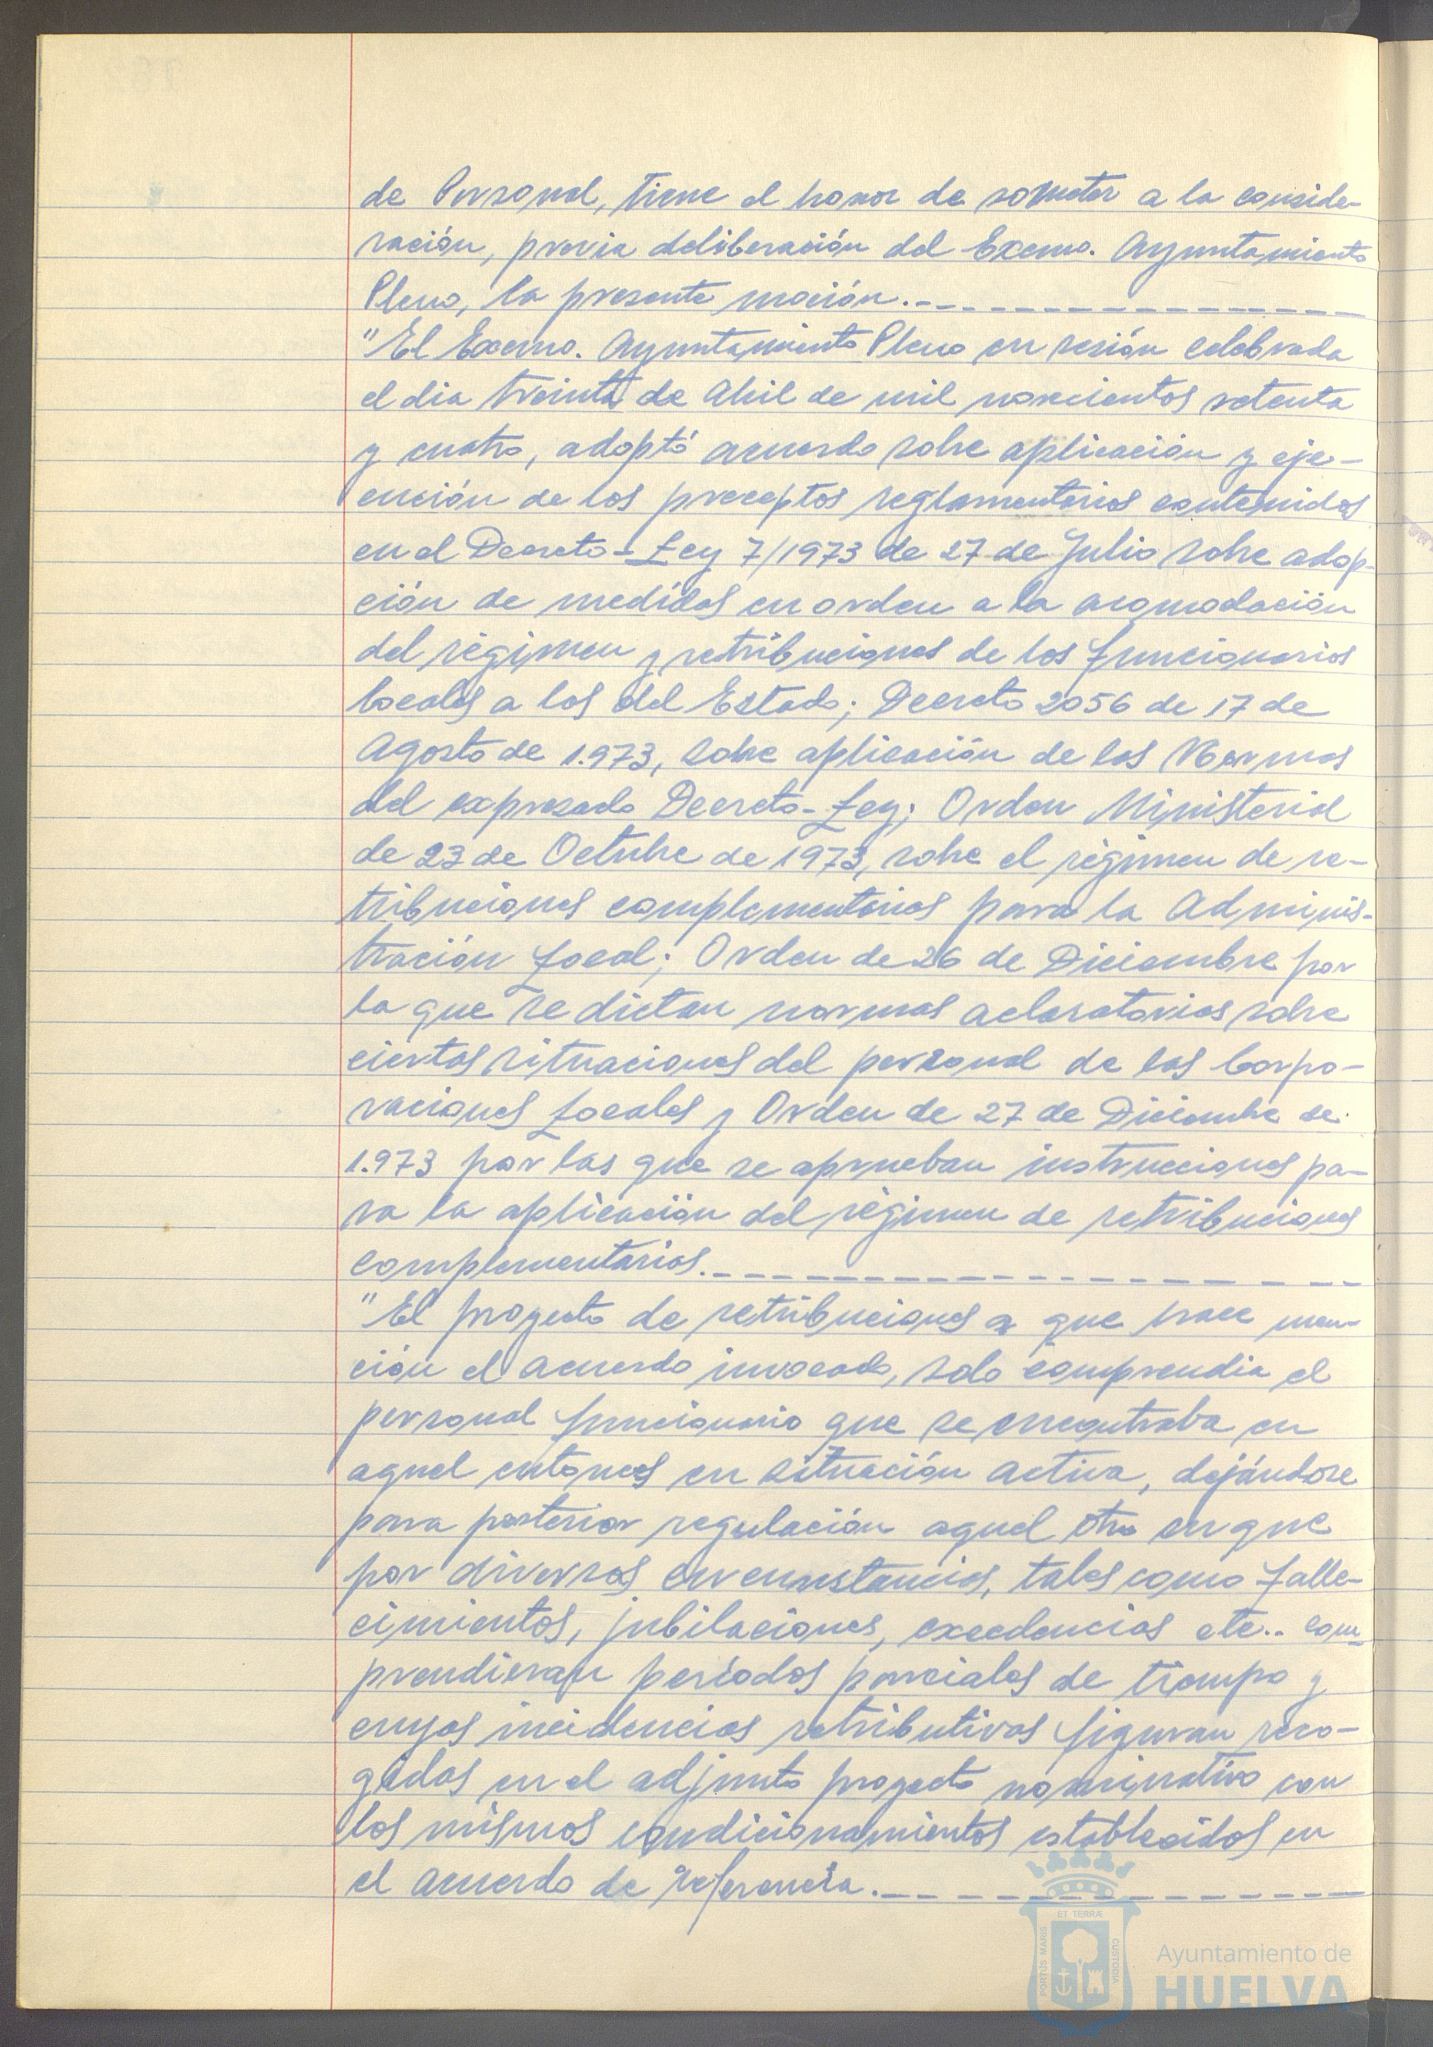 de Personal, tiene el honor de someter a la conside-
ración, previa deliberación del Excmo. Ayuntamiento
Pleno, la presente moción.-----------
"El Excmo. Ayuntamiento Pleno en sesión celebrada
el dia treinta de Abril de mil novecientos setenta
y cuatro, adoptó acuerdo sobre aplicación y eje-
cución de los preceptos reglamentarios contenidos
en el Decreto-Ley 7/1973 de 27 de Julio sobre adop-
ción de medidas en orden a la acomodación
del régimen y retribuciones de los funcionarios
locales a los del Estado; Decreto 2056 de 17 de
Agosto de 1.973, sobre aplicación de las Normas
del expresado Decreto-Ley; Orden Ministerial
de 23 de Octubre de 1973, sobre el régimen de re-
tribuciones complementarias para la Adminis-
tración Local; Orden de 26 de Diciembre por
la que se dictan normas aclaratorias sobre
ciertas situaciones del personal de las Corpo-
raciones Locales y Orden de 27 de Diciembre de
1.973 por las que se aprueban instrucciones pa-
ra la aplicación del régimen de retribuciones
complementarias.-----------
"El proyecto de retribuciones a que hace men-
ción el acuerdo invocado, solo comprendia el
personal funcionario que se encontraba en
aquel entonces en situación activa, dejándose
para posterior regulación aquel otro en que
por diversas circunstancias, tales como falle-
cimientos, jubilaciones, excedencias etc.. com-
prendieran períodos parciales de tiempo y
cuyas incidencias retributivas figuran reco-
gidas en el adjunto proyecto nominativo con
los mismos condicionamientos establecidos en
el acuerdo de referencia.-----------
ET TERRÆ
PORTUS MARIS
CUSTODIA
Ayuntamiento de
HUELVA